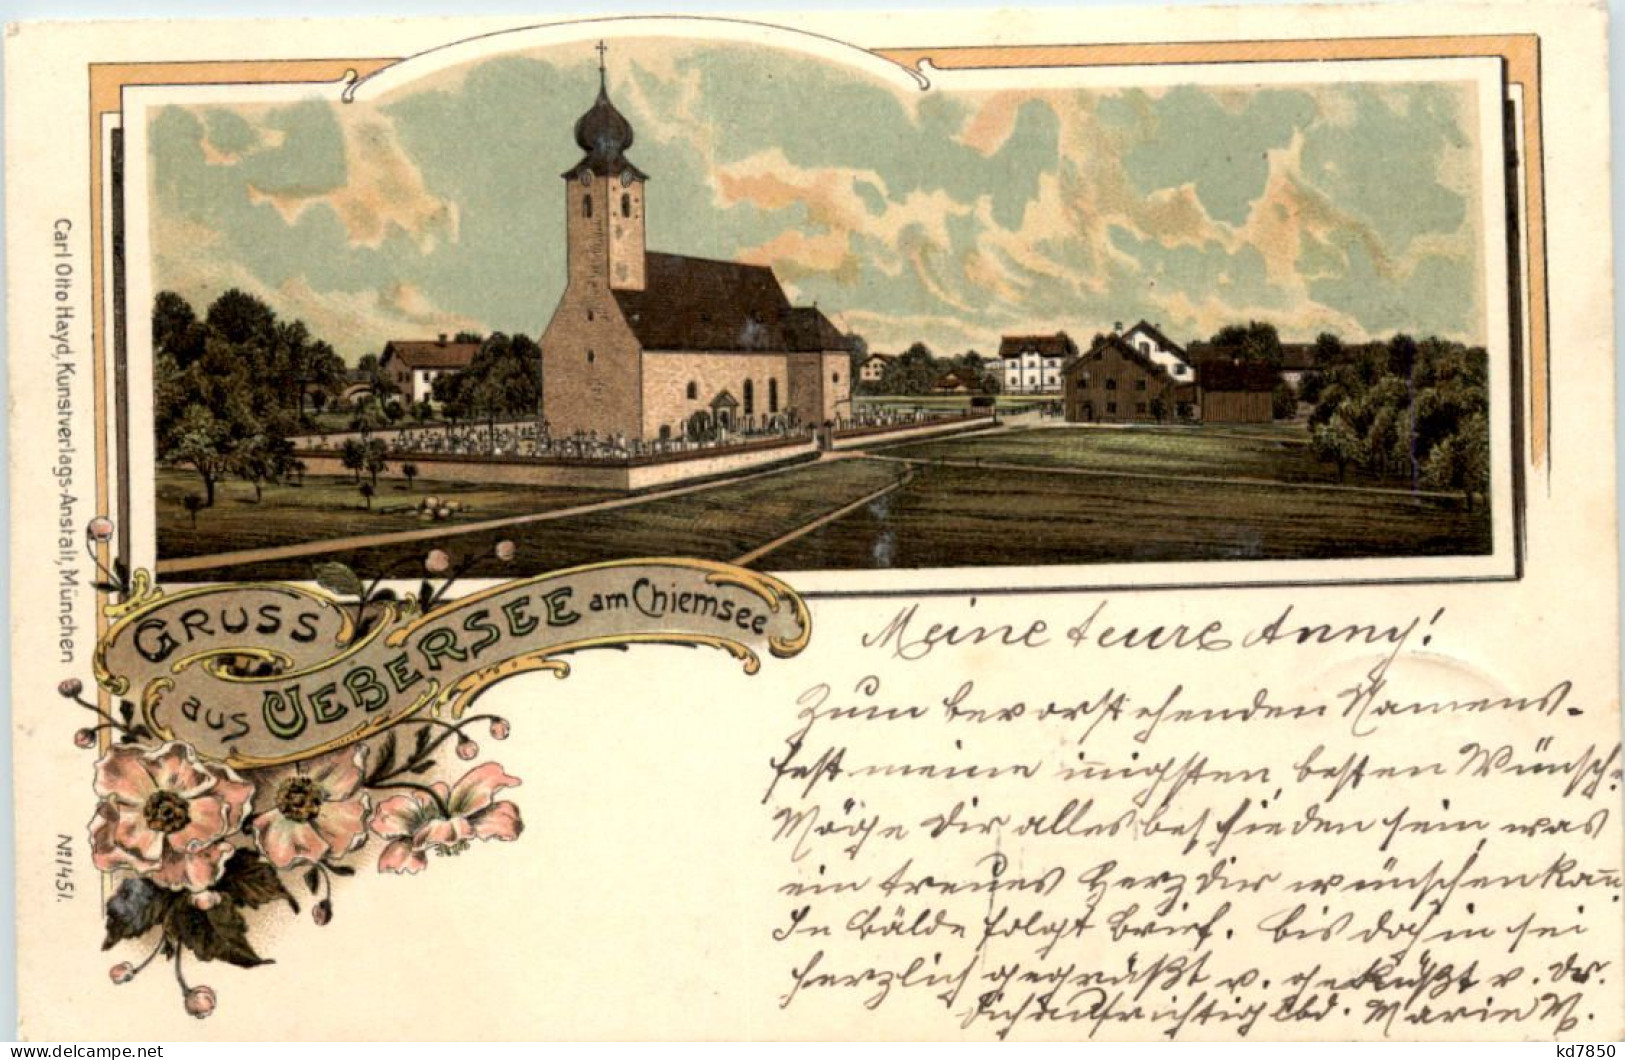 Carl Otto Hayd, Kunstverlags-Anstalt, München
No 1451.
GRUSS
aus UEBERSEE am Chiemsee
Meine teure Anny!
Zum bevorstehenden Namens-
fest meine innigsten, besten Wünsche.
Möge Dir alles beschieden sein, was
ein treues Herz Dir wünschen kann.
In Bälde folgt Brief. Bis dahin sei
herzlich gegrüßt u. geküßt v. Dr.
Dich aufrichtig lbd. Marie M.
kd7850